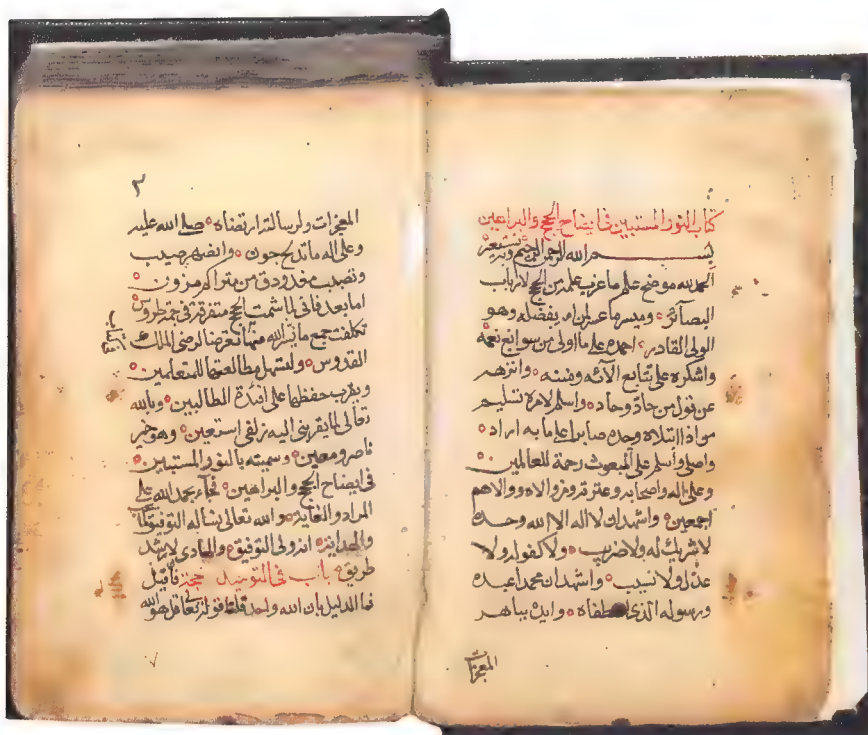 كتاب النور المستبين في ايضاح الحجج والبراهين
بسم الله الرحمن الرحيم وبه نستعين
الحمد لله موضح علم ما عزب علمه من الحجج لارباب
البصائر وميسر ما عسر ان ام بفضله وهو
الولي القادر احمده على ما اولى من سوابغ نعمه
واشكره على تتابع الآئه ومننه وانزهه
عن قول من حادّ وحاد واسلم لامره تسليم
من اذا ابتلاه وجده صابرا على ما به اراد
واصلي وأسلم على المبعوث رحمة للعالمين
وعلى اله واصحابه وعترته ومن والاه ووالاهم
اجمعين واشهد ان لا اله الا الله وحده
لا شريك له ولا ضريب ولا كفو له ولا
عدل ولا نسيب واشهد ان محمدا عبده
ورسوله الذي اصطفاه وايده بباهر
المعجزات
٢
المعجزات ولرسالته ارتضاه صلى الله عليه
وعلى اله ما تدلج جون وانضهر صيهب
ونصب مغدودق من متراكم مزون
اما بعد فاني لما شمت الحجج متفرقة في طروس
تكلفت جمع ما يسر الله منها تعرضا لرضى الملك
القدوس ولتسهل مطالعتها للمتعلمين
ويقرب حفظها على افئدة الطالبين وبالله
تعالى لما يقربني اليه زلفى استعين وهو خير
ناصر ومعين وسميته بالنور المستبين
في ايضاح الحجج والبراهين فجآء بحمد الله على
المراد والغاية والله تعالى نساله التوفيق لما يحب
والهداية انه ولي التوفيق والهادي لارشد
طريق باب في التوحيد حجة فان قيل
فما الدليل بان الله واحد قلنا قوله تعالى قل هو الله